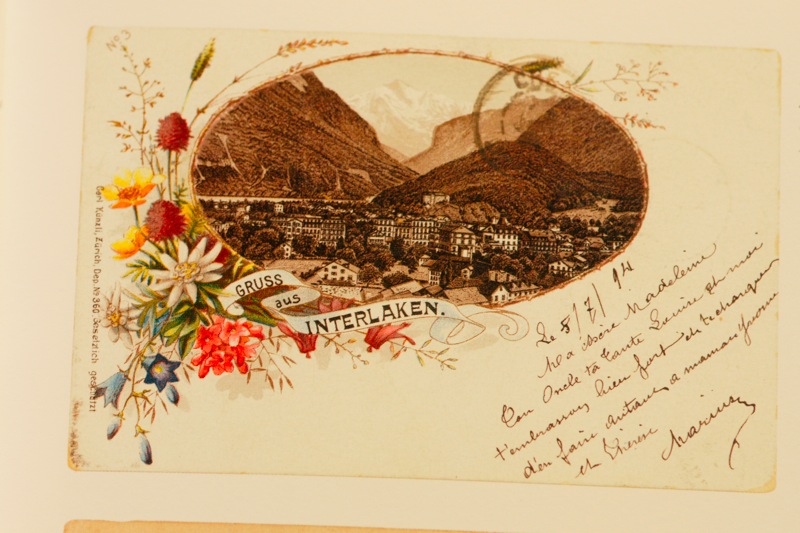 No 3
Carl Künzli, Zürich, Dep. No 360 Gesetzlich geschützt
GRUSS
aus
INTERLAKEN.
Le 8/7/94
Ma chère Madeleine
Ton Oncle ta tante Louise et moi
t'embrassons bien fort et te chargeons
d'en faire autant a maman Yvonne
et Thérèse
Marius